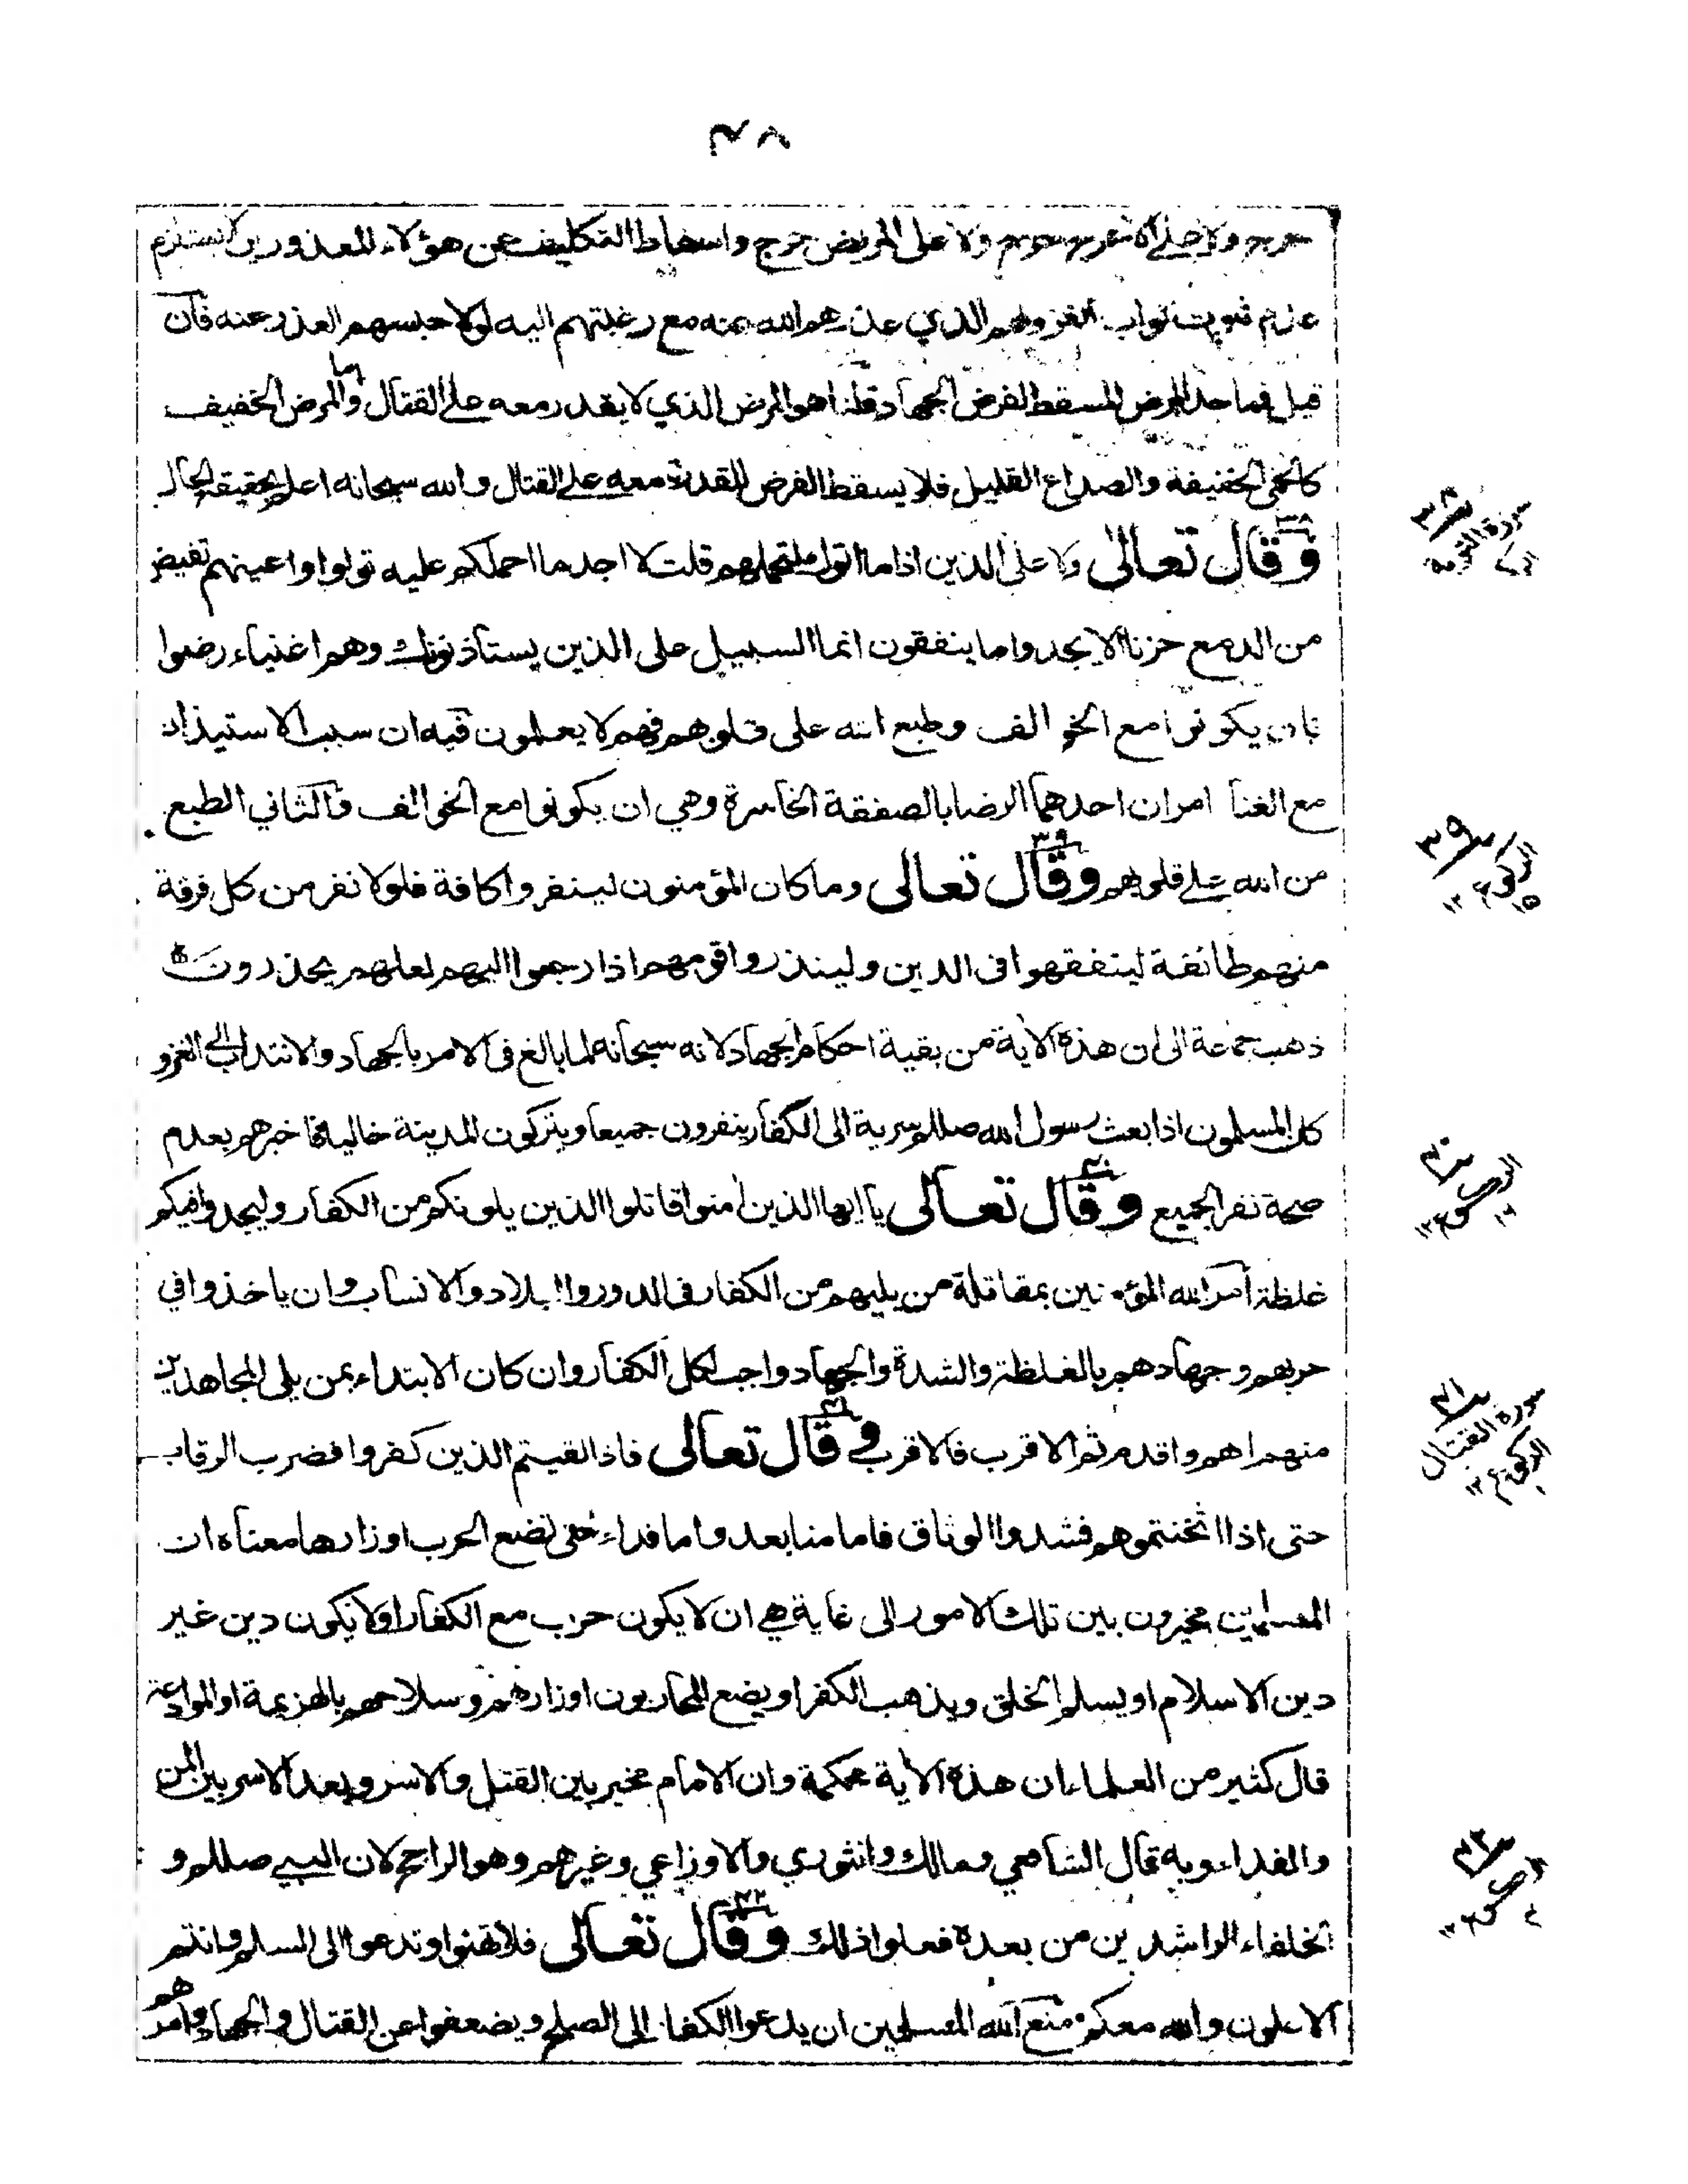 ٤٨
حرج ولا على الاعرج حرج ولا على المريض حرج واسقاط التكليف عن هؤلاء المعذورين لا يستلزم
عدم ثبوت ثواب الغزو لهم الذي عذرهم الله عنه مع رغبتهم اليه لولا حبسهم العذر عنه فان
قيل فما حد المرض المسقط لفرض الجهاد قلنا هو المرض الذي لا يقدر معه على القتال واما المرض الخفيف
كالحمى الخفيفة والصداع القليل فلا يسقط الفرض للقدرة معه على القتال والله سبحانه اعلم بحقيقة الحال
٣٨
وقال تعالى ولا على الذين اذا ما اتوك لتحملهم قلت لا اجد ما احملكم عليه تولوا واعينهم تفيض
سورة التوبة
من الدمع حزنا الا يجدوا ما ينفقون انما السبيل على الذين يستأذنونك وهم اغنياء رضوا
بان يكونوا مع الخوالف وطبع الله على قلوبهم فهم لا يعلمون فيه ان سبب الاستيذان
مع الغنا امران احدهما الرضا بالصفقة الخاسرة وهي ان يكونوا مع الخوالف والثاني الطبع
٣٩
من الله على قلوبهم وقال تعالى وما كان المؤمنون لينفروا كافة فلولا نفر من كل فرقة
منهم طائفة ليتفقهوا فى الدين ولينذروا قومهم اذا رجعوا اليهم لعلهم يحذرون
ذهب جماعة الى ان هذه الاية من بقية احكام الجهاد لانه سبحانه لما بالغ فى الامر بالجهاد والانتداب الى الغزو
كان المسلمون اذا بعث رسول الله صللم سرية الى الكفار ينفرون جميعا ويتركون المدينة خالية فاخبرهم بعدم
٤٠
صحة نفر الجميع وقال تعالى يا ايها الذين امنوا قاتلوا الذين يلونكم من الكفار وليجدوا فيكم
غلظة امر الله المؤمنين بمقاتلة من يليهم من الكفار فى الدور والبلاد والانساب وان ياخذوا في
حربهم وجهادهم بالغلظة والشدة والجهاد واجب لكل الكفار وان كان الابتداء بمن يلى المجاهدين
٤١
منهم اهم واقدم ثم الاقرب فالاقرب وقال تعالى فاذا لقيتم الذين كفروا فضرب الرقاب
سورة القتال
الركوع
حتى اذا اثخنتموهم فشدوا الوثاق فاما منا بعد واما فداء حتى تضع الحرب اوزارها معناه ان
المسلمين مخيرون بين تلك الامور الى غاية هي ان لا يكون حرب مع الكفار اولا يكون دين غير
دين الاسلام او يسلم الخلق ويذهب الكفر او يضع المحاربون اوزارهم وسلاحهم بالهزيمة او الموادعة
قال كثير من العلماء ان هذه الاية محكمة وان الامام مخير بين القتل والاسر وبعد الاسر بين المن
والفداء وبه قال الشافعي ومالك والثوري والاوزاعي وغيرهم وهو الراجح لان النبي صللم و
٤٢
الخلفاء الراشدين من بعده فعلوا ذلك وقال تعالى فلا تهنوا وتدعوا الى السلم وانتم
الاعلون والله معكم منع الله المسلمين ان يدعوا الكفار الى الصلح ويضعفوا عن القتال والجهاد وامرهم